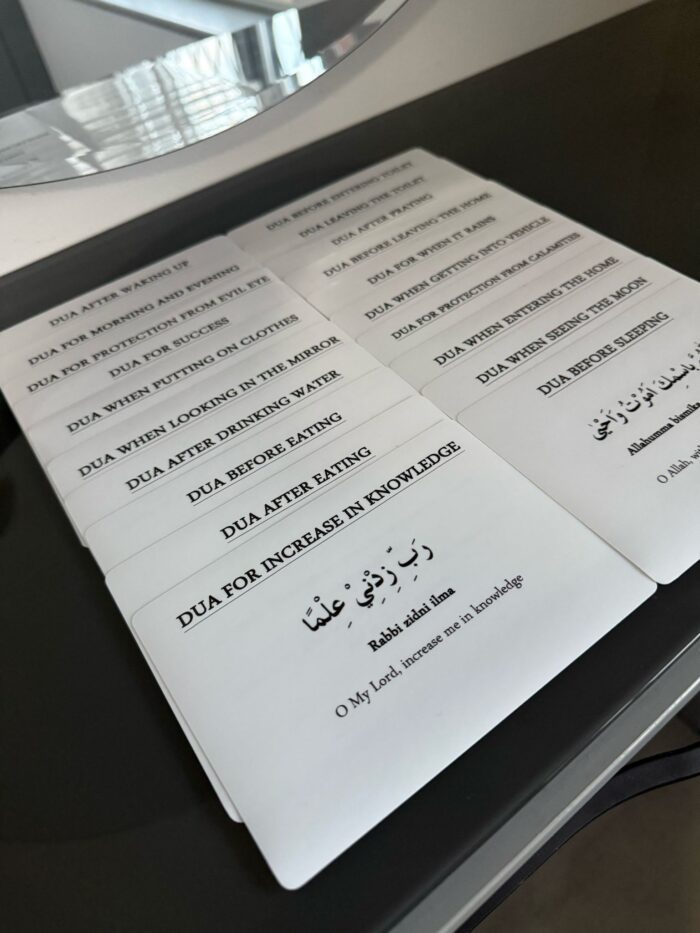 DUA AFTER WAKING UP
DUA FOR MORNING AND EVENING
DUA FOR PROTECTION FROM EVIL EYE
DUA FOR SUCCESS
DUA WHEN PUTTING ON CLOTHES
DUA WHEN LOOKING IN THE MIRROR
DUA AFTER DRINKING WATER
DUA BEFORE EATING
DUA AFTER EATING
DUA FOR INCREASE IN KNOWLEDGE
رَبِّ زِدْنِيْ عِلْمًا
Rabbi zidni ilma
O My Lord, increase me in knowledge
DUA BEFORE ENTERING TOILET
DUA LEAVING THE TOILET
DUA AFTER PRAYING
DUA BEFORE LEAVING THE HOME
DUA FOR WHEN IT RAINS
DUA WHEN GETTING INTO VEHICLE
DUA FOR PROTECTION FROM CALAMITIES
DUA WHEN ENTERING THE HOME
DUA WHEN SEEING THE MOON
DUA BEFORE SLEEPING
بِاسْمِكَ اَمُوْتُ وَاَحْيٰى
Allahumma bismika
O Allah,